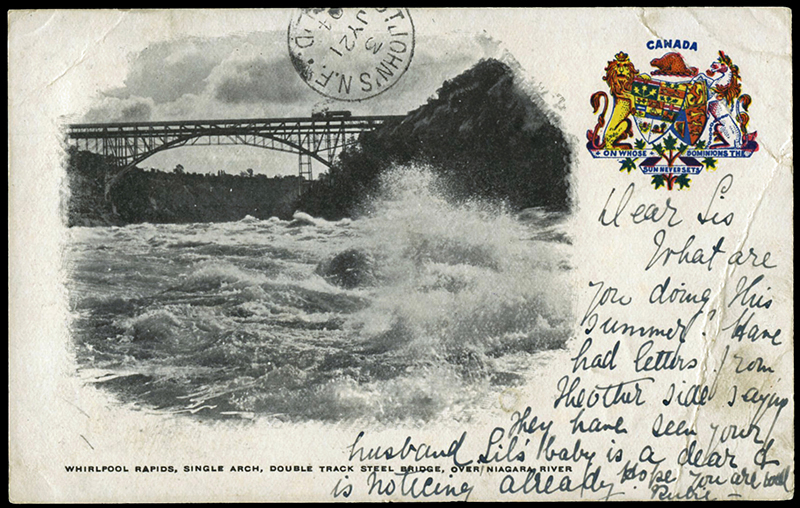 ST. JOHN'S N.F.L.D.
3
JY 21
04
CANADA
ON WHOSE DOMINIONS THE
SUN NEVER SETS
Dear Sis
What are
you doing this
summer? Have
had letters from
the other side saying
they have seen your
husband Lil's baby is a dear &
is noticing already Hope you are well
Rubie
WHIRLPOOL RAPIDS, SINGLE ARCH, DOUBLE TRACK STEEL BRIDGE, OVER NIAGARA RIVER